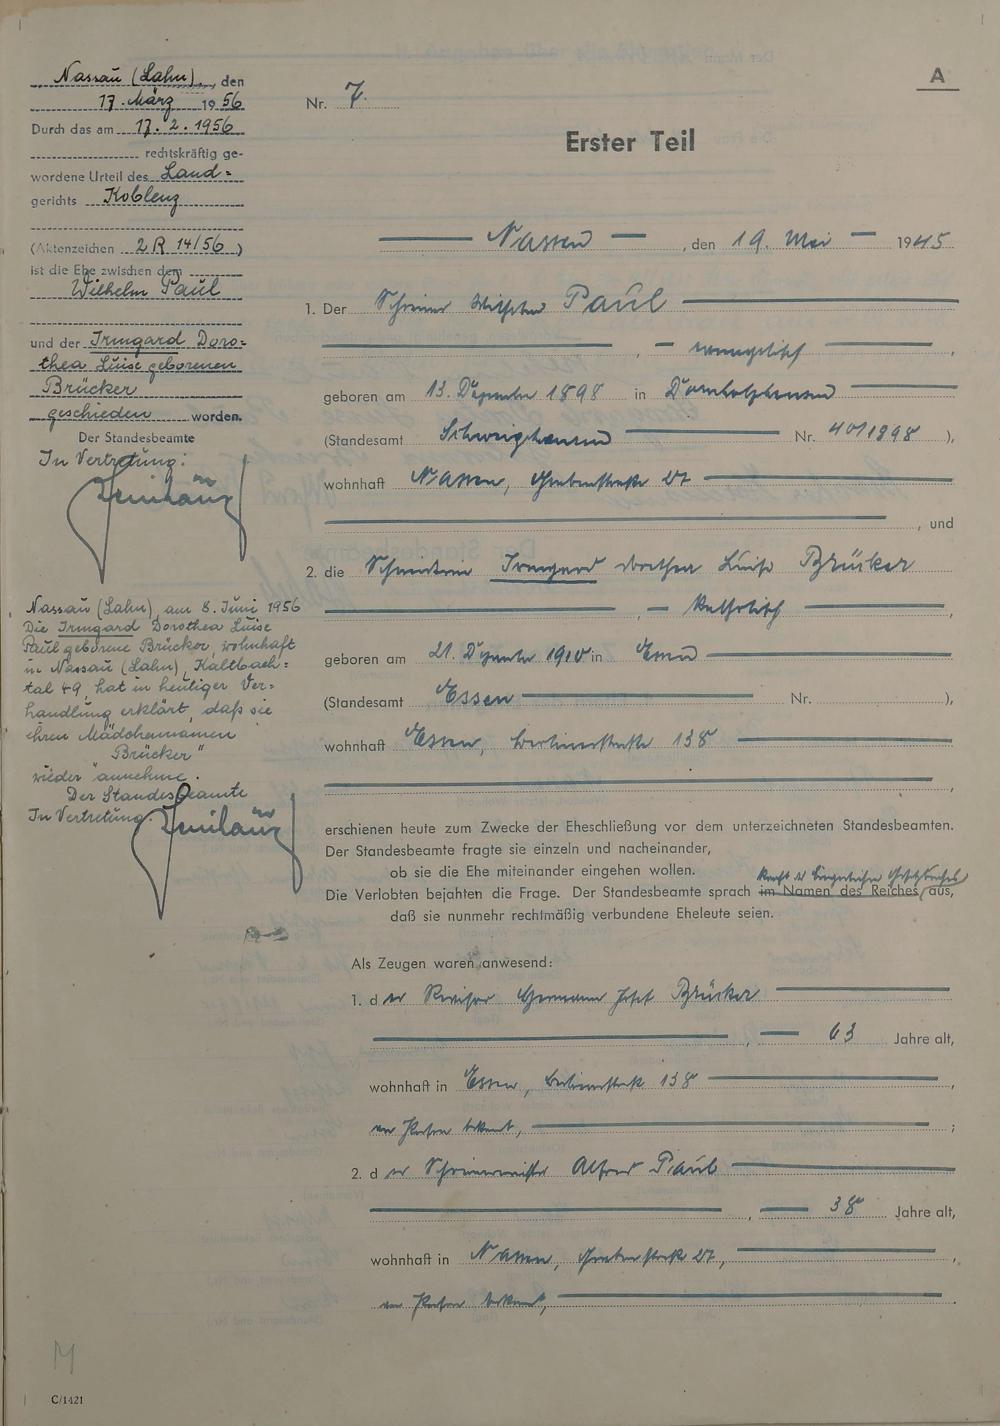 Nassau (Lahn), den
17. März 1956
Durch das am 17. 2. 1956
rechtskräftig ge-
wordene Urteil des Land=
gerichts Koblenz
(Aktenzeichen 2 R 14/56)
ist die Ehe zwischen dem
Wilhelm Paul
und der Irmgard Doro=
thea Luise geborenen
Brücker
geschieden worden.
Der Standesbeamte
In Vertretung:
Nassau (Lahn), am 8. Juni 1956
Die Irmgard Dorothea Luise
Paul geborene Brücker, wohnhaft
in Nassau (Lahn), Kaltbach=
tal 49, hat in heutiger Ver=
handlung erklärt, daß sie
ihren Mädchennamen
"Brücker"
wieder annehme.
Der Standesbeamte
In Vertretung:
A
Nr. 7.
Erster Teil
Nassau, den 19. Mai 1945
1. Der Schreiner Wilhelm Paul
, evangelisch,
geboren am 13. Dezember 1898 in Dornholzhausen
(Standesamt Schweighausen Nr. 40/1898),
wohnhaft Nassau, Grabenstraße 27
, und
2. die Irmgard Dorothea Luise Brücker
, katholisch,
geboren am 21. Dezember 1910 in Essen
(Standesamt Essen Nr. ),
wohnhaft Essen, Berlinerstraße 138
,
erschienen heute zum Zwecke der Eheschließung vor dem unterzeichneten Standesbeamten.
Der Standesbeamte fragte sie einzeln und nacheinander,
ob sie die Ehe miteinander eingehen wollen.
Kraft des bürgerlichen Gesetzbuches
Die Verlobten bejahten die Frage. Der Standesbeamte sprach im Namen des Reiches aus,
daß sie nunmehr rechtmäßig verbundene Eheleute seien.
Als Zeugen waren anwesend:
1. der Revisor Hermann Josef Brücker
, 63 Jahre alt,
wohnhaft in Essen, Berlinerstraße 138,
von Person bekannt,;
2. der Schreinermeister Alfred Paul
, 38 Jahre alt,
wohnhaft in Nassau, Grabenstraße 27,
von Person bekannt,
M
C/1421